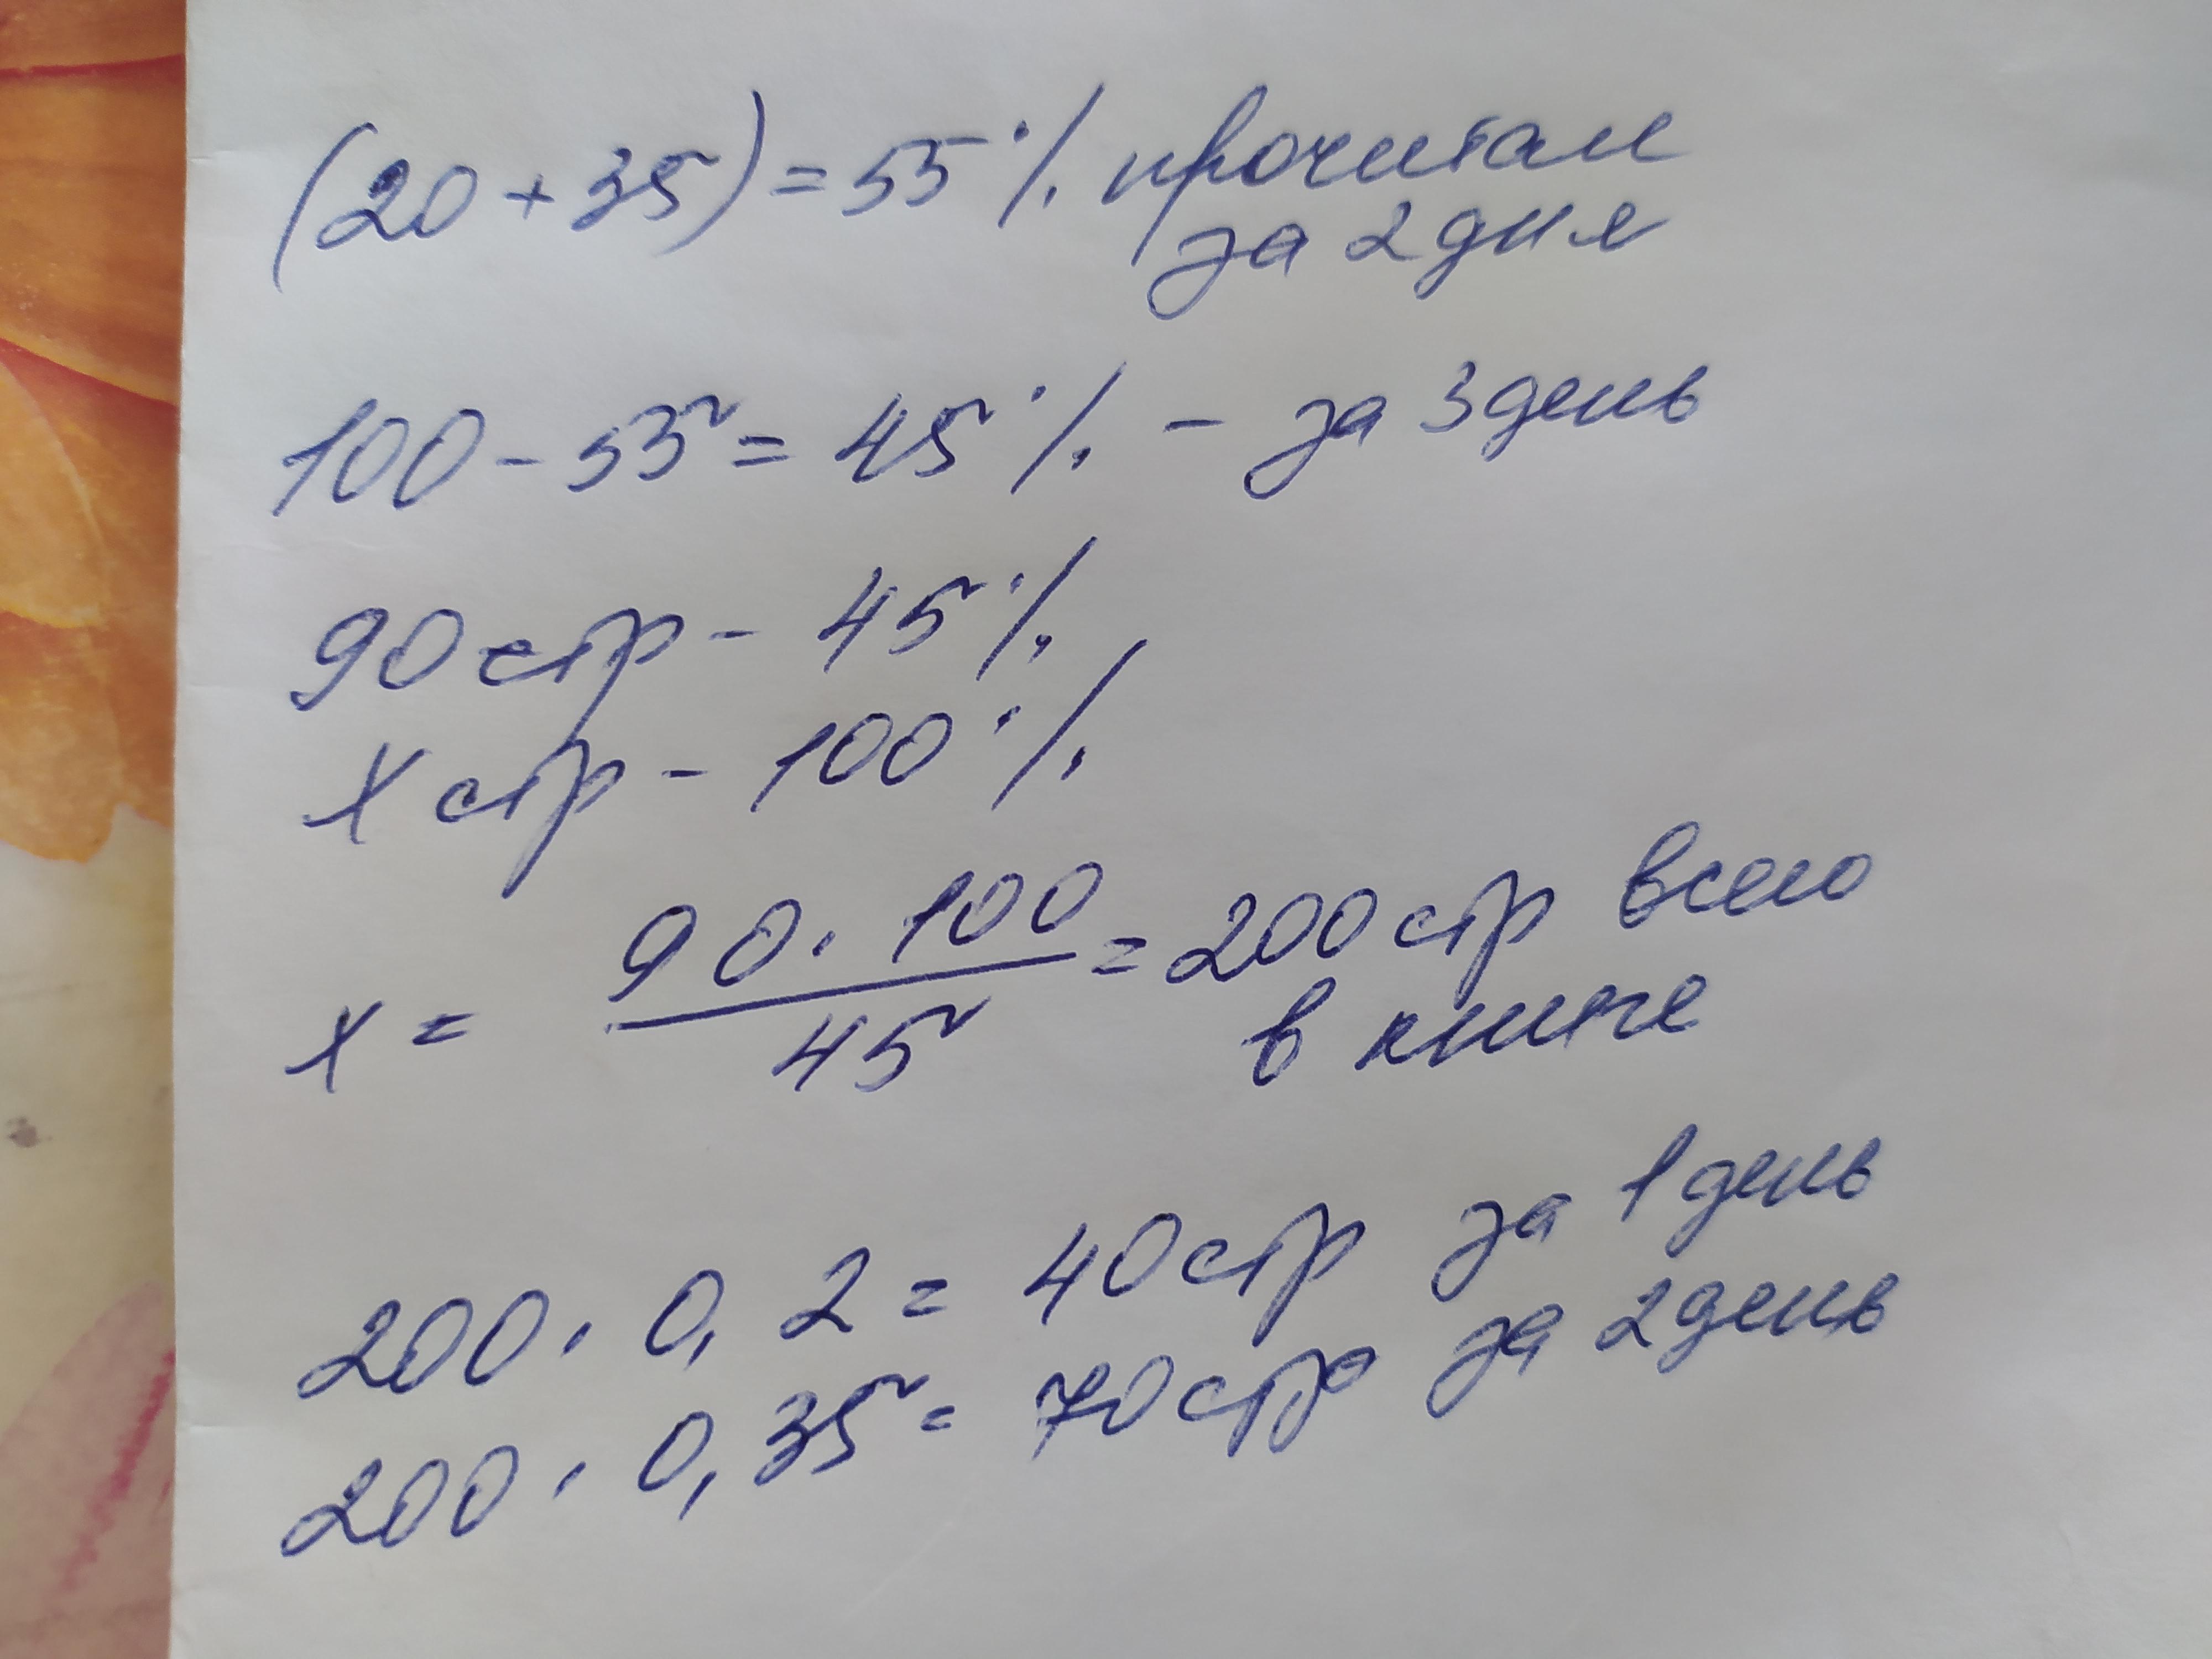 (20+35)=55% прочитал
за 2 дня
100-55=45% - за 3 день
90 стр - 45%
х стр - 100%
х = 90·100/45 = 200 стр всего
в книге
200·0,2= 40 стр за 1 день
200·0,35= 70 стр за 2 день